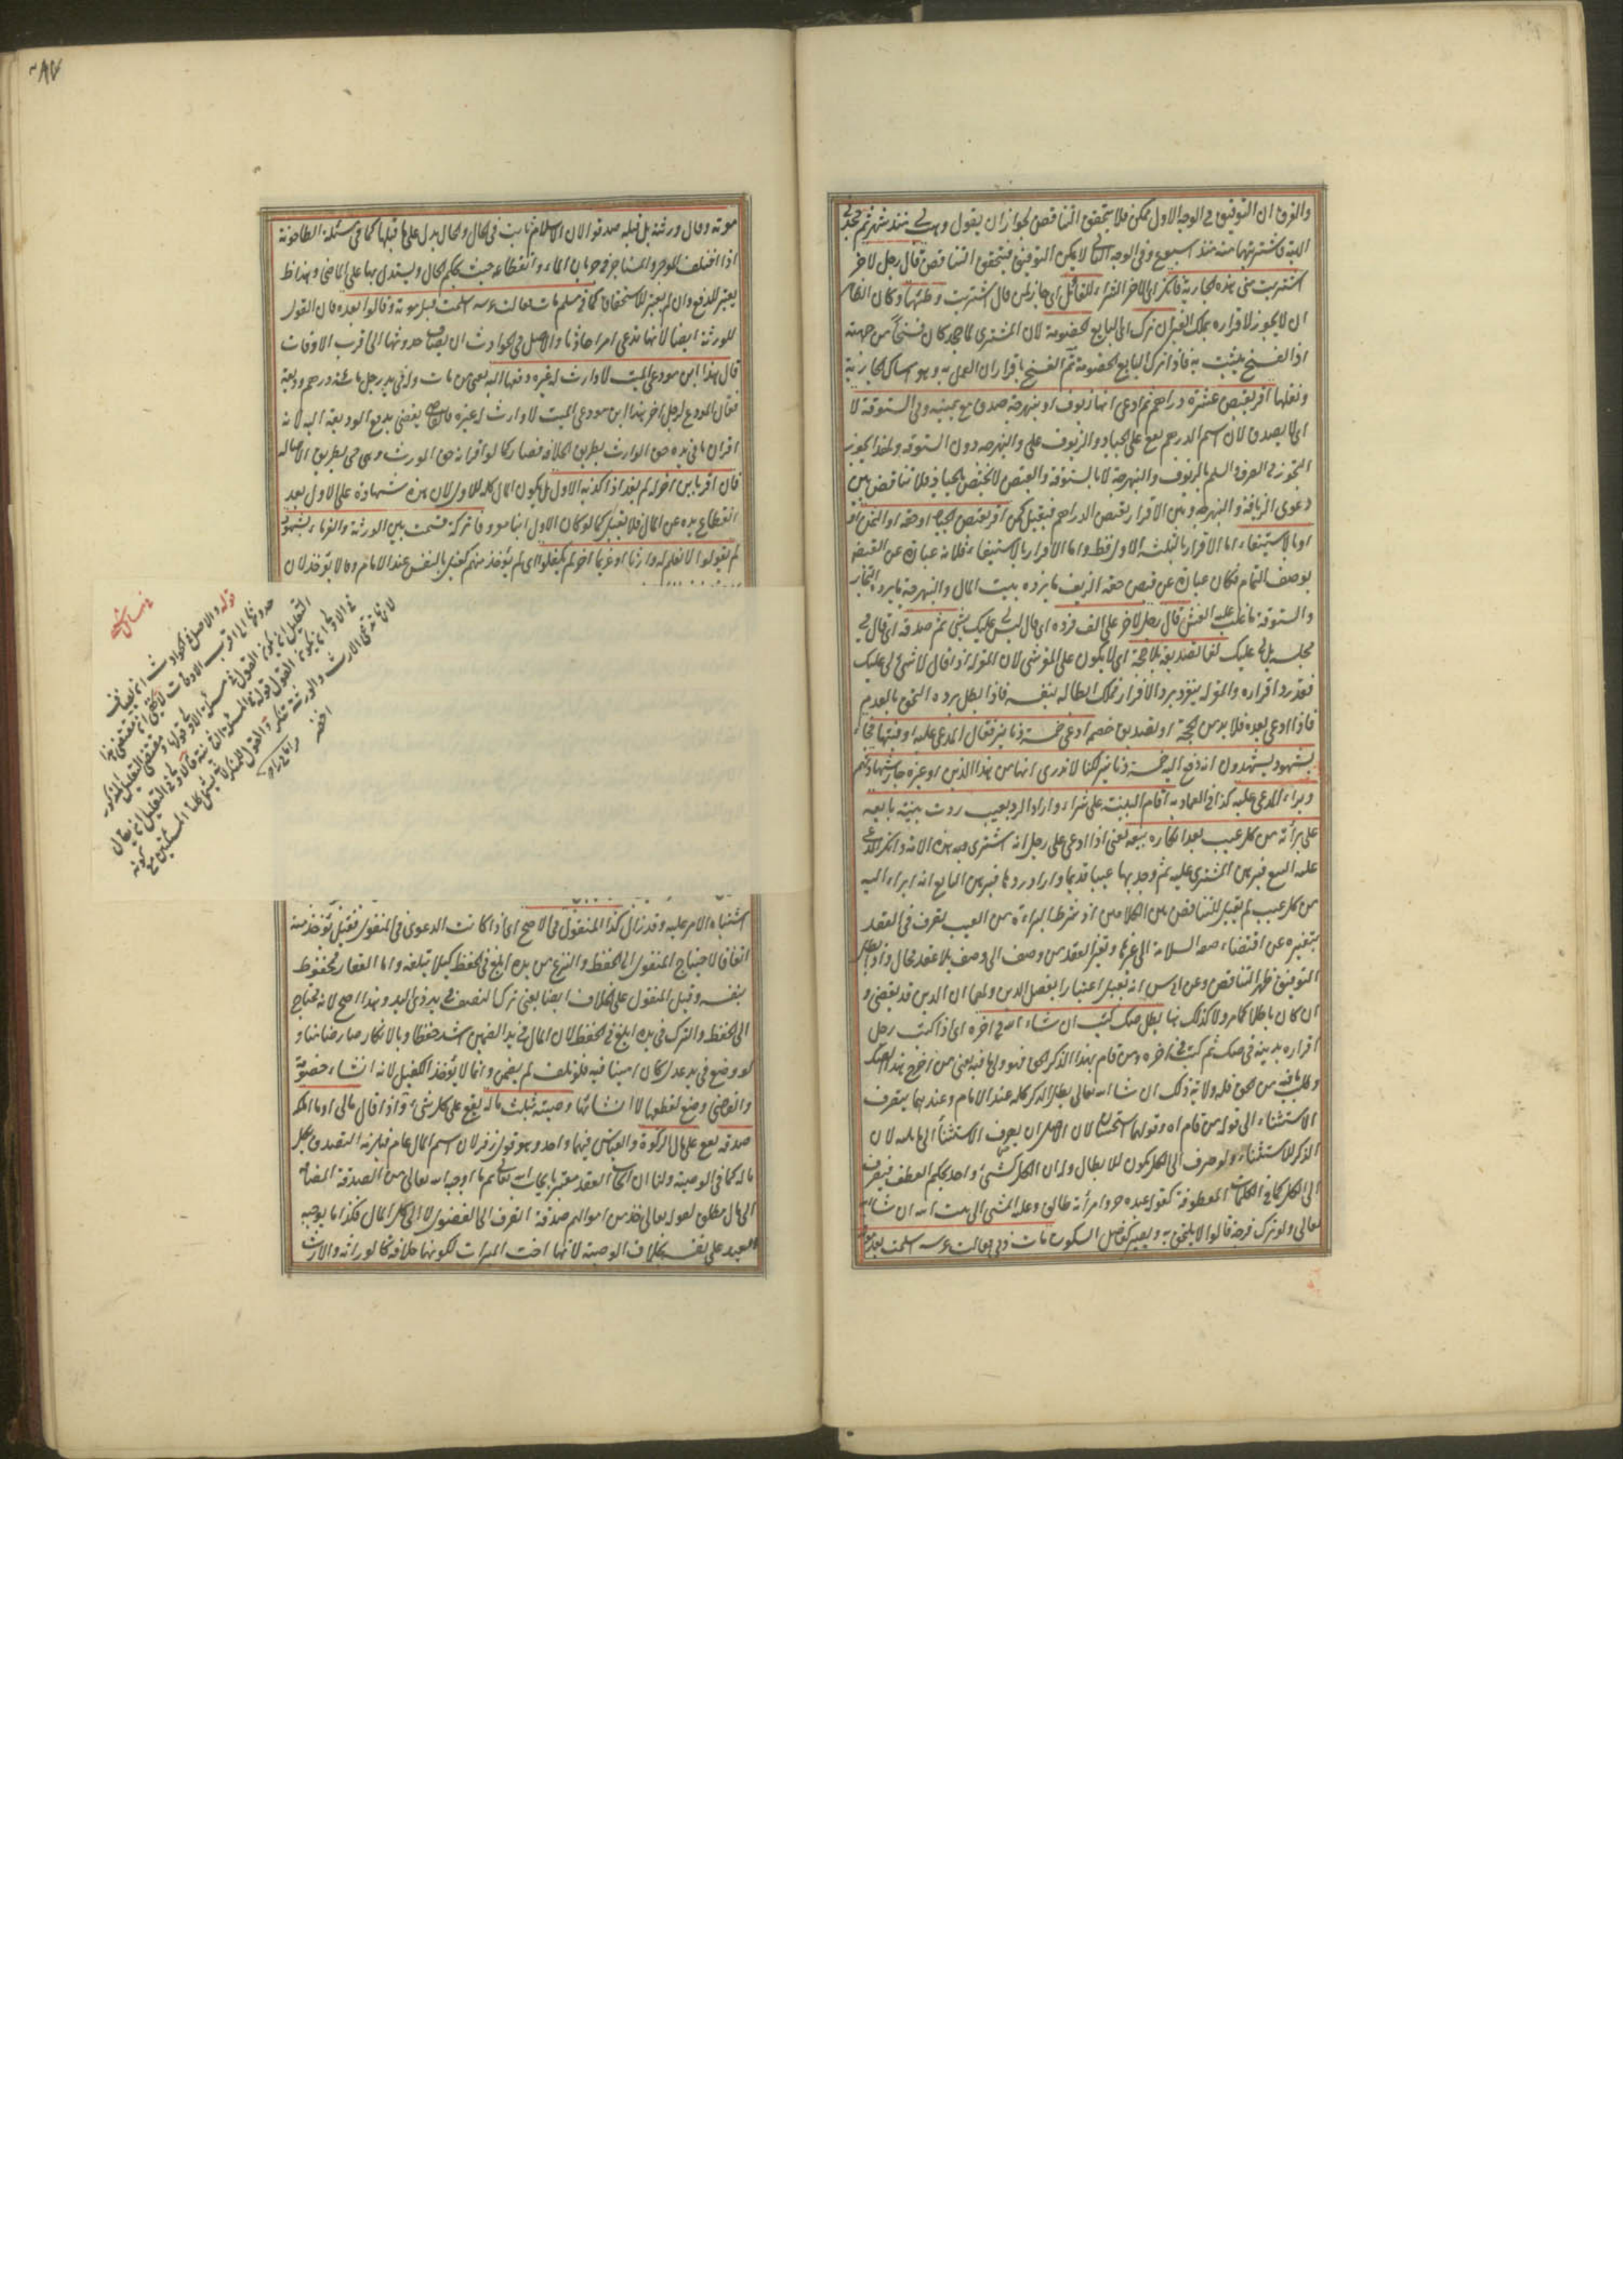 والفرق ان التوفيق في الوجه الاول ممكن فلا يتحقق التناقض لجواز ان يقول وهب لي منذ شهر ثم جحدني
الهبة فاشتريتها منه منذ اسبوع وفي الوجه الثاني لا يمكن التوفيق فيتحقق التناقض قال رجل لاخر
اشتريت مني هذه الجارية فانكر اي الاخر الشراء للقائل اي جاز لمن قال اشتريت وطئها وكان الظاهر
ان لا يجوز لاقراره بملك الغير ان ترك اي البايع الخصومة لان المشتري لما جحد كان فسخا من جهته
اذ الفسخ يثبت به فاذا ترك البايع الخصومة تم الفسخ باقتران العمل به وهو امساك الجارية
ونقلها اقر بقبض عشرة دراهم ثم ادعى انها زيوف او بنهرجة صدق مع يمينه وفي الستوقة لا
اي لا يصدق لان اسم الدرهم يقع على الجياد والزيوف على والنبهرجة دون الستوقة ولهذا يجوز
التجوز في الصرف والسلم بالزيوف والنبهرجة لا بالستوقة والقبض لا يختص بالجياد فلا تناقض بين
دعوى الزيافة والنبهرجة وبين الاقرار بقبض الدراهم فيقبل كمن اقر بقبض الجياد او حقه او الثمن
او بالاستيفاء اما الاقرار بالثلثة الاول فظ واما الاقرار بالاستيفاء فلانه عبارة عن القبض
بوصف التمام فكان عبارة عن قبض حقه الزيف ما يرده بيت المال والنبهرجة ما يرده التجار
والستوقة ما غلب عليه الغش قال رجل لاخر علي الف فرده اي قال ليس عليك شيء ثم صدقه اي قال في
مجلسه بل لي عليك لغا تصديقه بلا حجة اي لا يكون على المقر شيء لان المقر له اذا قال لا شيء لي عليك
فقد رد اقراره والمقر له ينفرد برد الاقرار فملك ابطاله بنفسه فاذا بطل برده التحق بالعدم
فاذا ادعى بعده فلا بد من الحجة او تصديق خصمه ادعى خمسة دنانير فقال المدعى عليه اوفيتها فجاء
بشهود يشهدون انه دفع اليه خمسة دنانير لكنا لا ندري انها من هذا الدين او غيره جاز شهادتهم
وبراء المدعى عليه كذا في العمادية اقام البينة على شراء واراد الرد بعيب ردت بينة بايعه
على برأته من كل عيب بعد انكاره بيعه يعني اذا ادعى على رجل انه اشترى منه هذه الامة وانكر المدعى
عليه البيع فبرهن المشتري عليه ثم وجد بها عيبا قديما واراد ردها فبرهن البايع انه ابراء اليه
من كل عيب لم يقبل للتناقض بين الكلامين اذ شرط البراءة من العيب تصرف في العقد
بتغييره عن اقتضاء صفة السلامة الى غيرها وتغير العقد من وصف الى وصف بلا عقد محال واذا بطل
التوفيق ظهر التناقض وعن ابي يوسف انه تقبل اعتبارا بفصل الدين ولهما ان الدين قد يقضى و
ان كان باطلا كما مر ولا كذلك هنا يبطل صك كتب ان شاء الله في اخره اي اذا كتب رجل
اقراره بدينه في صك ثم كتب في اخره ومن قام بهذا الذكر الحق فهو ولي ما فيه يعني من اخرج هذا الصك
وطلب ما فيه من الحق فله ولاية ذلك ان شاء الله تعالى بطل الذكر كله عند الامام وعندهما يتصرف
الاستثناء الى قوله من قام اه وقولهما استحسان لان الاصل ان يصرف الاستثناء الى ما يليه لان
الذكر للاستيثاق ولو صرف الى الكل يكون للابطال وله ان الكل كشيء واحد بحكم العطف فيصرف
الى الكل كما في الكلمات المعطوفة كقوله عبده حر وامرأته طالق وعليه المشي الى بيت الله ان شاء الله
تعالى ولو ترك فرجة قالوا لا يلتحق به ويصير كفاصل السكوت مات ذمي فقالت عرسه اسلمت بعد موته
٢٨٧
موته وقال ورثته بل قبله صدقوا لان الاسلام ثابت في الحال والحال يدل على ما قبلها كما في مسئلة الطاحونة
اذا اختلف الموجر والمستاجر في جريان الماء وانقطاعه حيث يحكم الحال ويستدل بها على الماضي وهذا ظ
يعتبر للدفع وان لم يعتبر للاستحقاق كما في مسلم مات فقالت عرسه اسلمت قبل موته وقالوا بعده فان القول
للورثة ايضا لانها تدعي امرا حادثا والاصل في الحوادث ان يضاف حدوثها الى اقرب الاوقات
قال هذا ابن مودعي الميت لا وارث له غيره دفعها اليه يعني من مات وله في يد رجل مائة درهم وديعة
فقال المودع لرجل اخر هذا ابن مودعي الميت لا وارث له غيره فالقاضي يقضي بدفع الوديعة اليه لانه
اقر ان ما في يده حق الوارث بطريق الخلافة فصار كما لو اقر انه حق المورث وهو حي بطريق الاصالة
فان اقر بابن اخر له لم يفد اذا كذبه الاول بل يكون المال كله للاول لان هذه شهادة على الاول بعد
انقطاع يده عن المال فلا يقبل كما لو كان الاول ابنا معروفا تركة قسمت بين الورثة والغرماء بشهود
لم يقولوا لا نعلم له وارثا او غريما اخر لم يكفلوا اي لم يؤخذ منهم كفيل بالنفس عند الامام وقالا يؤخذ لان
في مسائل شتى
قوله والاصل في الحوادث ان يضاف
حدوثها الى اقرب الاوقات لا يخفى ان مقتضى هذا
التعليل ان يكون القول في مسئلة الاولى قولها ومقتضى التعليل المذكور
في الاولى ان يكون القول قوله في المسئلة الثانية فالاولى في التعليل ان يقال
لانها تدعي الارث والورثة تنكر والقول للمنكر لانه يشمل كلتا المسئلتين مع كونه
اخصر
اشتباه الامر عليه وقد زال كذا المنقول في الاصح اي اذا كانت الدعوى في المنقول فقيل يؤخذ منه
اتفاقا لاحتياج المنقول الى الحفظ والنزع من يده ابلغ في الحفظ كيلا يتلفه واما العقار محفوظ
بنفسه وقيل المنقول على الخلاف ايضا يعني ترك النصف في يد ذي اليد وهذا اصح لانه يحتاج
الى الحفظ والترك في يده ابلغ في الحفظ لان المال في يد الضمين اشد حفظا وبالانكار صار ضامنا و
لو وضع في يد عدل كان امينا فيه فلو تلف لم يضمن وانما لا يؤخذ الكفيل لانه انشاء خصومة
والقاضي وضع لقطعها لا انشائها وصيته بثلث ماله يقع على كل شيء واذا قال مالي او ما املك
صدقة يقع على مال الزكوة والقياس فيهما واحد وهو قول زفر لان اسم المال عام فيلزمه التصدق بكل
ماله كما في الوصية ولنا ان ايجاب العقد معتبر بايجاب الله تعالى ثم ما اوجبه الله تعالى من الصدقة المضافة
الى مال مطلق لقوله تعالى خذ من اموالهم صدقة انصرف الى الفضول لا الى كل المال فكذا ما يوجبه
العبد على نفسه بخلاف الوصية لانها اخت الميراث لكونها خلافة كالوراثة والارث